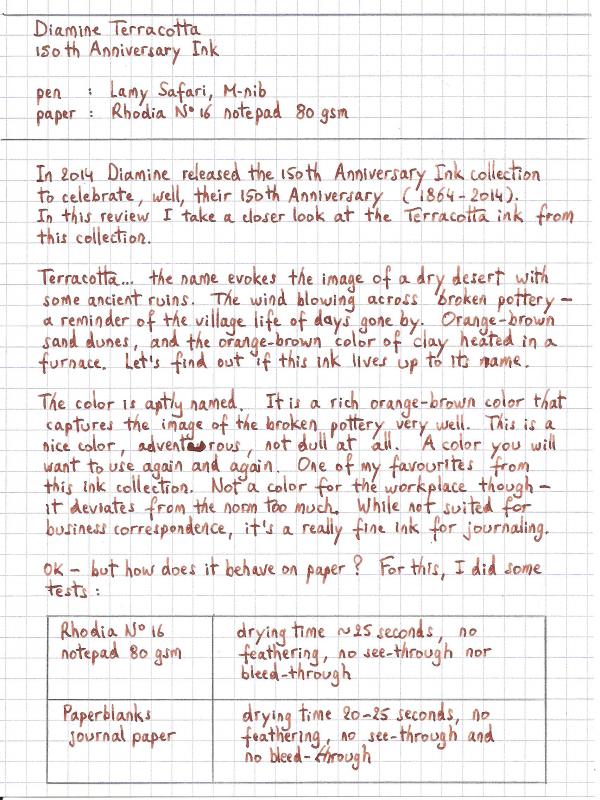 Diamine Terracotta
150th Anniversary Ink
pen : Lamy Safari, M-nib
paper : Rhodia N° 16 notepad 80 gsm
In 2014 Diamine released the 150th Anniversary Ink collection
to celebrate, well, their 150th Anniversary (1864-2014).
In this review I take a closer look at the Terracotta ink from
this collection.
Terracotta... the name evokes the image of a dry desert with
some ancient ruins. The wind blowing across broken pottery –
a reminder of the village life of days gone by. Orange-brown
sand dunes, and the orange-brown color of clay heated in a
furnace. Let's find out if this ink lives up to its name.
The color is aptly named. It is a rich orange-brown color that
captures the image of the broken pottery very well. This is a
nice color, adventurous, not dull at all. A color you will
want to use again and again. One of my favourites from
this ink collection. Not a color for the workplace though –
it deviates from the norm too much. While not suited for
business correspondence, it's a really fine ink for journaling.
OK – but how does it behave on paper? For this, I did some
tests :
Rhodia N° 16
notepad 80 gsm
drying time ~25 seconds, no
feathering, no see-through nor
bleed-through
Paperblanks
journal paper
drying time 20-25 seconds, no
feathering, no see-through and
no bleed-through